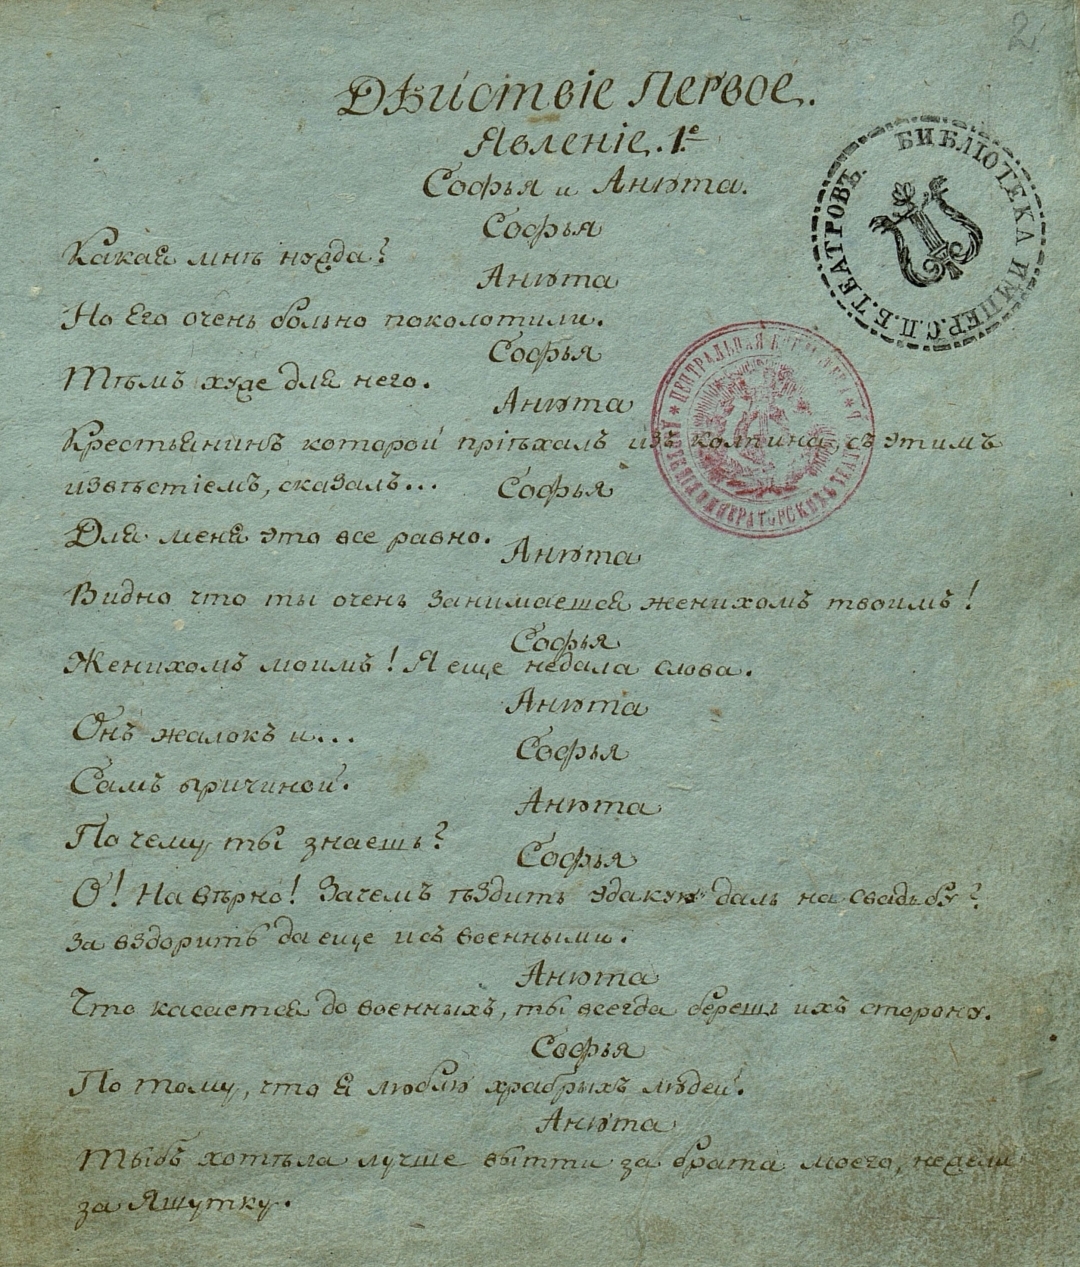 2.
Дѣиствіе Первое.
Явленіе. 1.е
Софья и Анюта.
Софья
Какая мнѣ нужда?
Анюта
Но Его очень больно поколотили.
Софья
Тѣмъ хуже для него.
Анюта
Крестьянинъ которой пріѣхалъ изъ колпина съ этимъ
извѣстіемъ, сказалъ...
Софья
Для меня это все равно.
Анюта
Видно что ты очень занимаешся женихомъ твоимъ!
Софья
Женихомъ моимъ! Я еще недала слова.
Анюта
Онъ жалокъ и...
Софья
Самъ причиной.
Анюта
По чему ты знаешь?
Софья
О! На вѣрно! Зачемъ ѣздить эдакую даль на свадьбу?
За вздорить да еще исъ военными.
Анюта
Что касается до военныхъ, ты всегда берешь ихъ сторону.
Софья
По тому, что я люблю храбрыхъ людей.
Анюта
Тыбъ хотѣла лучше вытти за брата моего, нежели
за Яшутку.
БИБЛІОТЕКА ИМПЕР. С.П.Б. ТЕАТРОВЪ.
ЦЕНТРАЛЬНАЯ ИМПЕРАТОРСКИХЪ